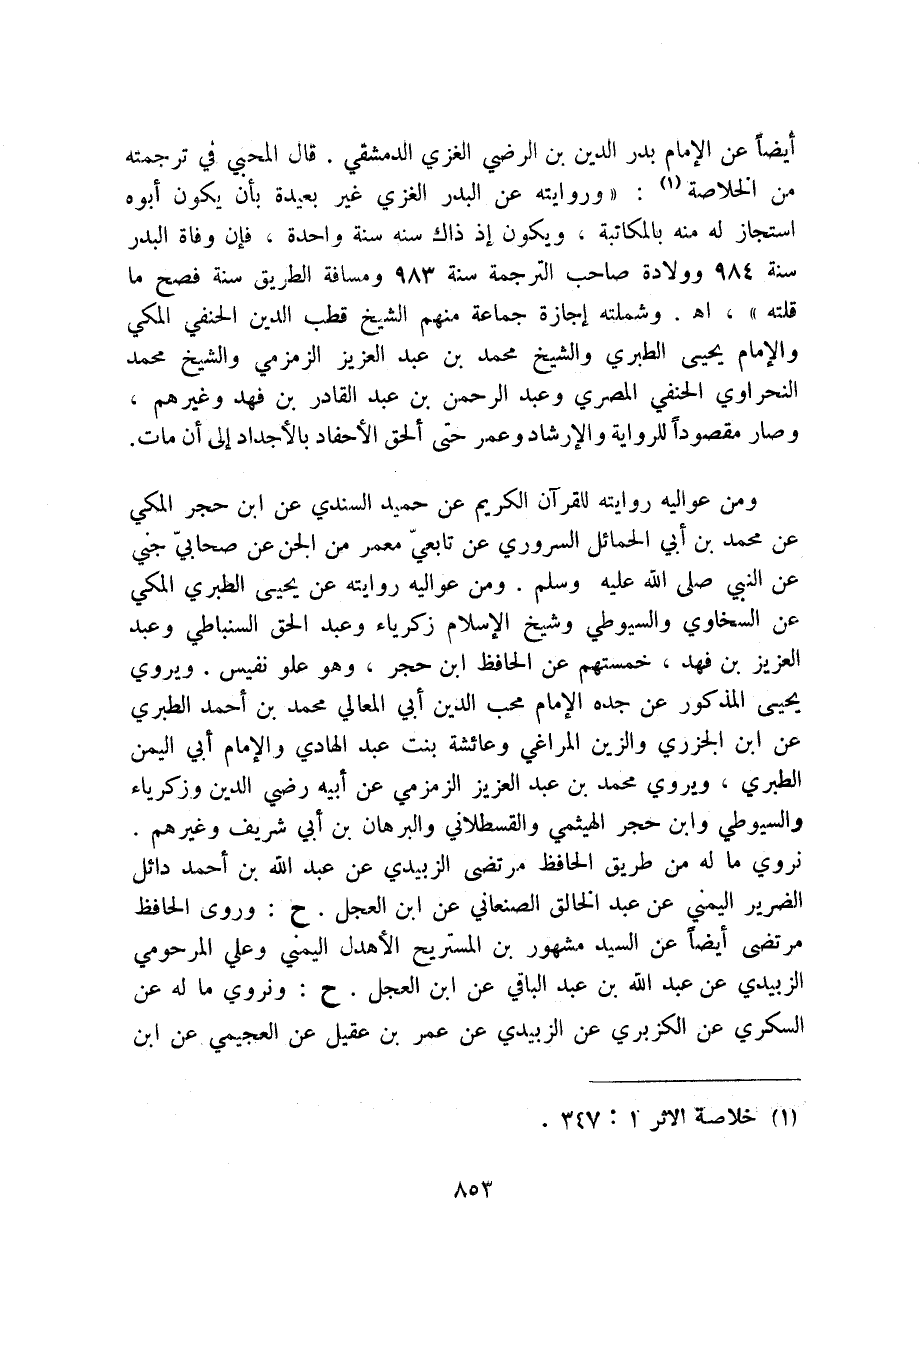 أيضاً عن الإمام بدر الدين بن الرضي الغزي الدمشقي . قال المحبي في ترجمته
من الخلاصة (١) : « وروايته عن البدر الغزي غير بعيدة بأن يكون أبوه
استجاز له منه بالمكاتبة ، ويكون إذ ذاك سنه سنة واحدة ، فإن وفاة البدر
سنة ٩٨٤ وولادة صاحب الترجمة سنة ٩٨٣ ومسافة الطريق سنة فصح ما
قلته » ، اه . وشملته إجازة جماعة منهم الشيخ قطب الدين الحنفي المكي
والإمام يحيى الطبري والشيخ محمد بن عبد العزيز الزمزمي والشيخ محمد
النحراوي الحنفي المصري وعبد الرحمن بن عبد القادر بن فهد وغيرهم ،
وصار مقصوداً للرواية والإرشاد وعمر حتى ألحق الأحفاد بالأجداد إلى أن مات.
ومن عواليه روايته للقرآن الكريم عن حميد السندي عن ابن حجر المكي
عن محمد بن أبي الحمائل السروري عن تابعيّ معمر من الجن عن صحابيّ جني
عن النبي صلى الله عليه وسلم . ومن عواليه روايته عن يحيى الطبري المكي
عن السخاوي والسيوطي وشيخ الإسلام زكرياء وعبد الحق السنباطي وعبد
العزيز بن فهد ، خمستهم عن الحافظ ابن حجر ، وهو علو نفيس . ويروي
يحيى المذكور عن جده الإمام محب الدين أبي المعالي محمد بن أحمد الطبري
عن ابن الجزري والزين المراغي وعائشة بنت عبد الهادي والإمام أبي اليمن
الطبري ، ويروي محمد بن عبد العزيز الزمزمي عن أبيه رضي الدين وزكرياء
والسيوطي وابن حجر الهيثمي والقسطلاني والبرهان بن أبي شريف وغيرهم .
نروي ما له من طريق الحافظ مرتضى الزبيدي عن عبد الله بن أحمد دائل
الضرير اليمني عن عبد الخالق الصنعاني عن ابن العجل . ح : وروى الحافظ
مرتضى أيضاً عن السيد مشهور بن المستريح الأهدل اليمني وعلي المرحومي
الزبيدي عن عبد الله بن عبد الباقي عن ابن العجل . ح : ونروي ما له عن
السكري عن الكزبري عن الزبيدي عن عمر بن عقيل عن العجيمي عن ابن
(١) خلاصة الاثر ١ : ٣٤٧ .
٨٥٣